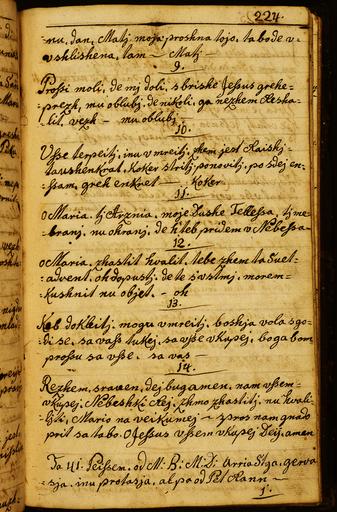 224.
nu, dan, Matj moja proshna tojo, ta bode v=
vshlishena, tam — Matj
9.
Prossi moli, de nj doli, sbriske Jessus grehe=
prezk, mu oblubj, de nikoli, ga nezhem Reska=
lit, vezk — mu oblubj
10.
Vsse terpeiti, inu vmreiti, zhem jest Raiskj=
taushenkrat, Koker striti, ponoviti, po sdej en=
ssam, greh enkret — Koker
11.
o Maria, tj Arznia, moje Dushe Tellessa, tj me=
branj, nu ohranj, de h teb pridem v Nebessa
12.
o Maria, zhastit hvalit, tebe zhem ta Suet=
advent, oh dopustj, de te s vstmj, morem=
kushnit nu objet, — oh
13.
Kob dokleitj, mogu vmreiti, boshja vola sgo=
di se, sa vass tukej, sa vsse vkupej, boga bom
prossu sa vsse, sa vas —
14.
Rezkem, sraven, dej bug amen, nam vssem=
vkupej, Nebeshki Rej, zhmo zhastiti, nu hvali=
liti, Mario na veikumej — spros nam gnado
prit sa tabo, O Jessus vssem vkupej Deij, amen
Ta 41. Peissem, od M: B: M: D:
sja, inu protasja, al pa od Pet Rann —
1.